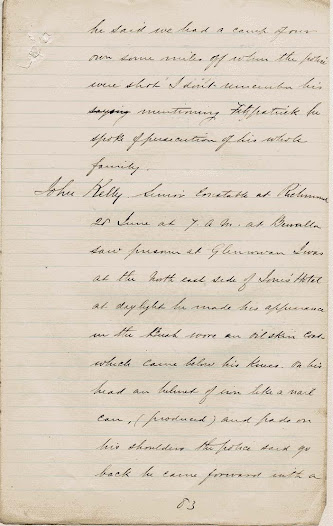 he said we had a camp of our
own some miles off when the police
were shot I don't remember his
saying mentioning Fitzpatrick he
spoke of persecution of his whole
family.
John Kelly Senior Constable at Richmond
28 June at 7 A.M. at Benalla
saw prisoner at Glenrowan I was
at the North east side of Jones' Hotel
at daylight he made his appearance
in the Bush wore an oil skin coat
which came below his knees. On his
head an helmet of iron like a nail
can, (produced) and pads on
his shoulders the police said go
back he came forward with a
83